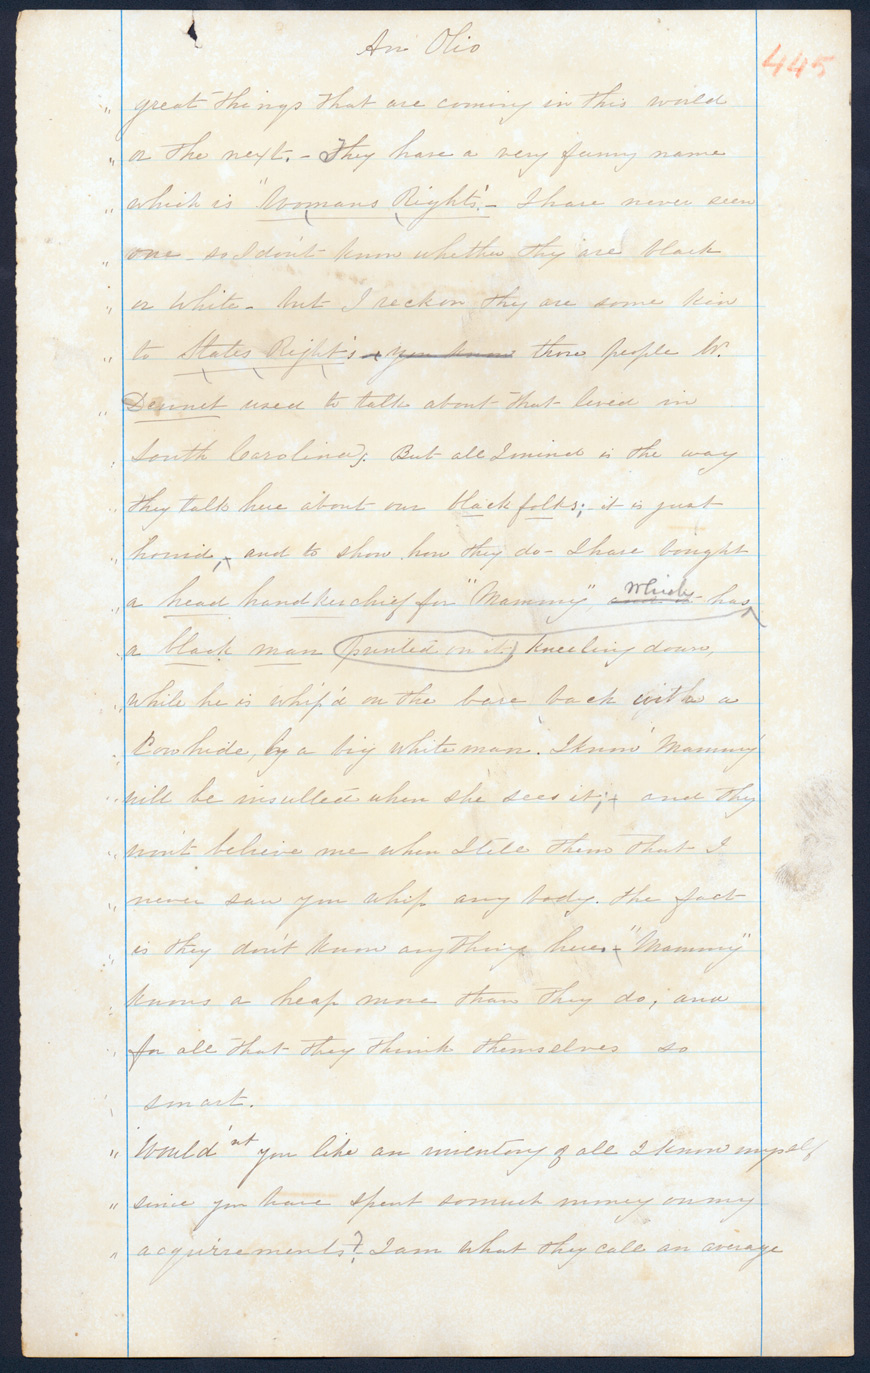 An Olio
445
" great things that are coming in this world
" or the next. - They have a very funny name
" which is "Womans Rights'. - I have never seen
" one - so I don't know whether they are black
" or white - but I reckon they are some kin
" to States Right's - you know those people W.
" Dennet used to talk about that lived in
" South Carolina). But all I mind is the way
" they talk here about our black folks; it is just
" horrid, - and to show how they do - I have bought
" a head handkerchief for "Mammy" which has
" a black man printed on it kneeling down,
" while he is whip'd on the bare back with a
" Cowhide, by a big white man. I know 'Mammy'
" will be insulted when she sees it; - and they
" won't believe me when I tell them that I
" never saw you whip any body. The fact
" is they don't know anything here. - "Mammy"
" knows a heap more than they do; and
" for all that they think themselves so
" smart.
" Would'nt you like an inventory of all I know myself
" since you have spent so much money on my
" acquirements? I am what they call an average